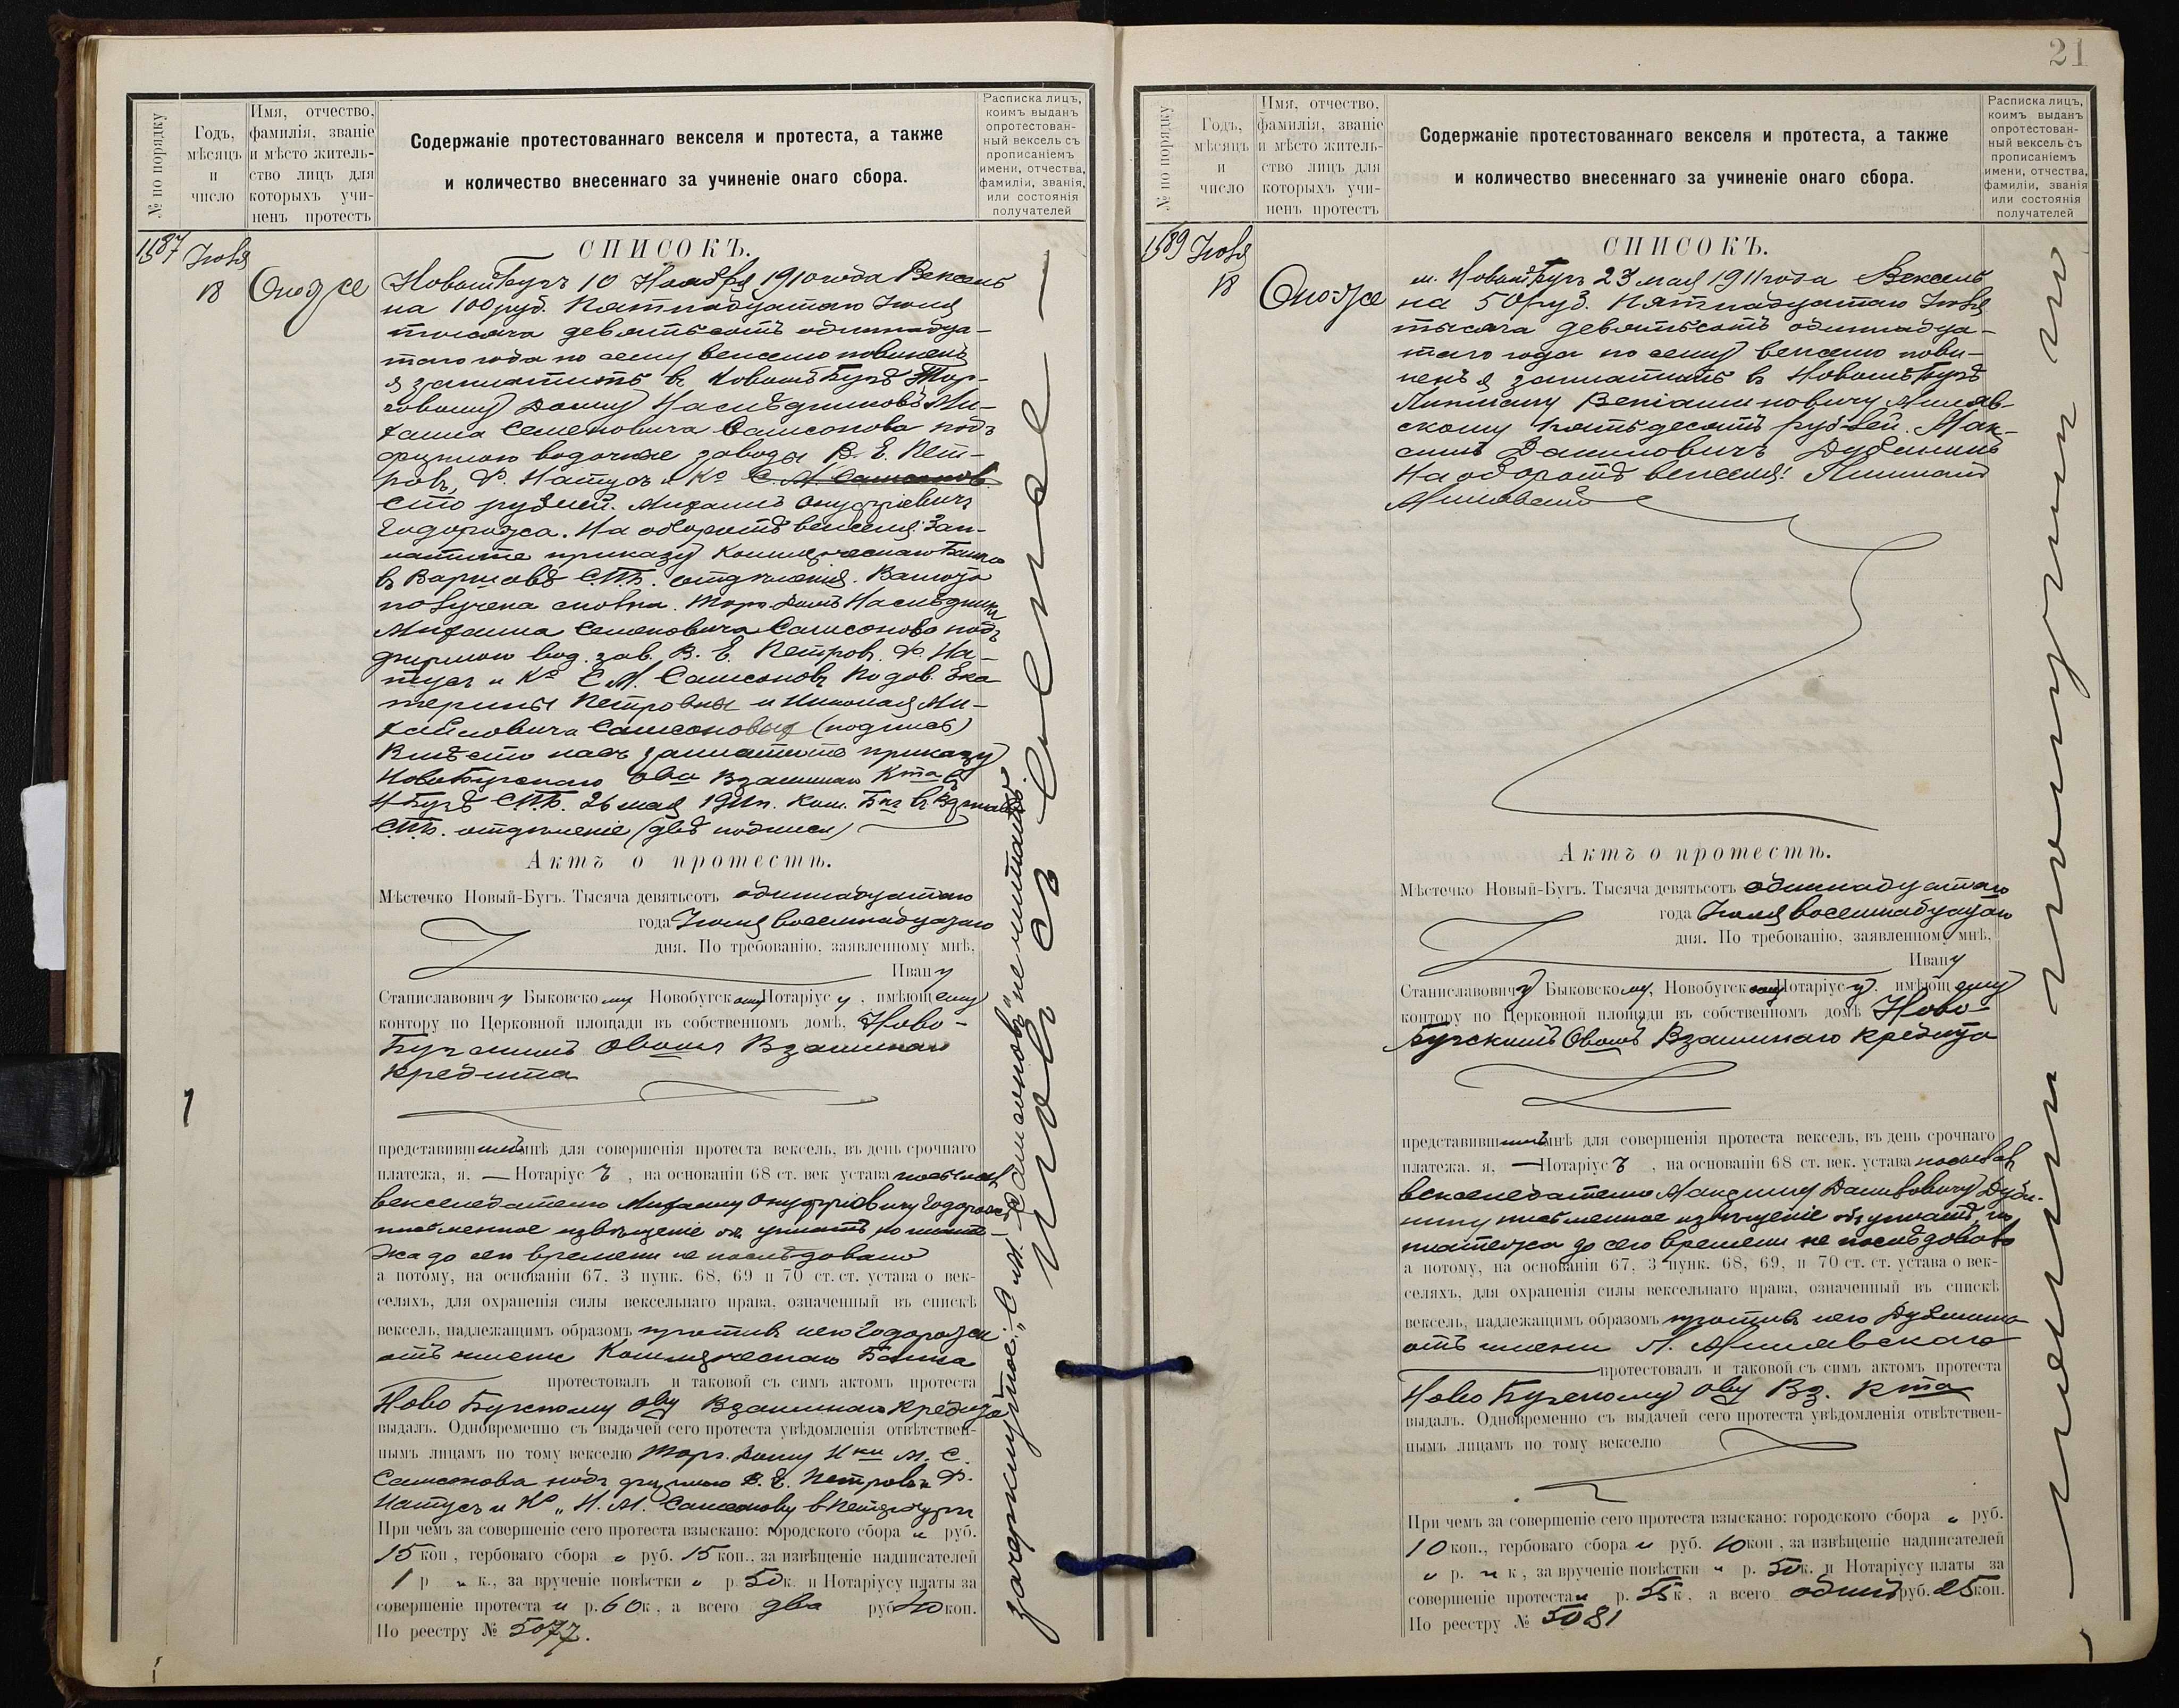 № по порядку
Годъ, мѣсяцъ и число
Имя, отчество, фамилія, званіе и мѣсто жительство лицъ для которыхъ учиненъ протестъ
Содержаніе протестованнаго векселя и протеста, а также
и количество внесеннаго за учиненіе онаго сбора.
Расписка лицъ, коимъ выданъ опротестованный вексель съ прописаніемъ имени, отчества, фамиліи, званія, или состоянія получателей
1587 Іюля
18 Оно же
СПИСОКЪ.
Новый Бугъ 10 Ноября 1910 года Вексель
на 100 руб. Пятнадцатаго Іюля
тысяча девятьсотъ одиннадца-
таго года по сему векселю повиненъ
я заплатить въ Новомъ Бугѣ Тор-
говому Дому Наслѣдниковъ Ми-
хаила Семеновича Самсонова подъ
фирмою водочные заводы В. Е. Пет-
ровъ, Ф. Натусъ и Ко С. М. Самсоновъ
сто рублей. Михаилъ Онуфріевичъ
На оборотѣ векселя: Зап-
латите приказу Коммерческаго Банка
въ Варшавѣ С.П.Б. отдѣленія. Валюта
получена сполна. Торг. Домъ Наслѣдник
Михаила Семеновича Самсонова подъ
фирмою вод. зав. В. Е. Петров. Ф. На-
тусъ и Ко С. М. Самсоновъ По дов. Ека
терины Петровны и Николая Ми-
хайловича Самсоновых (подпись)
Вмѣсто насъ заплатите приказу
НовоБугскаго Ова Взаимнаго Кта въ
Н Бугѣ С.П.Б. 26 мая 1911 г. Ком. Бнк въ Варшавѣ
С.П.Б. отдѣленіе (двѣ подписи)
Актъ о протестѣ.
Мѣстечко Новый-Бугъ. Тысяча девятьсотъ одиннадцатаго
года Іюля восемнадцатаго
дня. По требованію, заявленному мнѣ,
Ивану
Станиславовичу Быковскому Новобугскому Нотаріусу, имѣющему
контору по Церковной площади въ собственномъ домѣ, Ново-
Бугскимъ Овомъ Взаимнаго
Кредита
представившимъ мнѣ для совершенія протеста вексель, въ день срочнаго
платежа, я, — Нотаріусъ, на основаніи 68 ст. век устава послалъ
векселедателю Михаилу Онуфріевичу
письменное извѣщеніе объ уплатѣ, но плате-
жа до сего времени не послѣдовало
а потому, на основаніи 67. 3 пунк. 68, 69 и 70 ст. ст. устава о век-
селяхъ, для охраненія силы вексельнаго права, означенный въ спискѣ
вексель, надлежащимъ образомъ противъ него
отъ имени Коммерческаго Банка
протестовалъ и таковой съ симъ актомъ протеста
Ново Бугскому Ову Взаимнаго Кредита
выдалъ. Одновременно съ выдачей сего протеста увѣдомленія отвѣтствен-
нымъ лицамъ по тому векселю Торг. Дому Нки М. С.
Самсонова подъ фирмою В. Е. Петровъ Ф.
Натусъ и Ко „ Н. М. Самсонову в Петербургѣ
При чемъ за совершеніе сего протеста взыскано: городского сбора „ руб.
15 коп, гербоваго сбора „ руб. 15 коп., за извѣщеніе надписателей
1 р „ к., за врученіе повѣстки „ р. 50 к. и Нотаріусу платы за
совершеніе протеста „ р. 60 к, а всего два руб 40 коп.
По реестру № 5077.
зачеркнутое: „С М. Самсоновъ" не читать.
21
№ по порядку
Годъ, мѣсяцъ и число
Имя, отчество, фамилія, званіе и мѣсто жительство лицъ для которыхъ учиненъ протестъ
Содержаніе протестованнаго векселя и протеста, а также
и количество внесеннаго за учиненіе онаго сбора.
Расписка лицъ, коимъ выданъ опротестованный вексель съ прописаніемъ имени, отчества, фамиліи, званія или состоянія получателей
1589 Іюля
18 Оно же
СПИСОКЪ.
м. Новый Бугъ 23 мая 1911 года Вексель
на 50 руб. Пятнадцатаго Іюля
тысяча девятьсотъ одиннадца-
таго года по сему векселю пови-
ненъ я заплатить въ Новомъ Бугѣ
Липману Веніаминовичу Миляв-
скому пятьдесятъ рублей. Мак-
симъ Даниловичъ Дубининъ
На оборотѣ векселя: Липманъ
Милявскій
Актъ о протестѣ.
Мѣстечко Новый-Бугъ. Тысяча девятьсотъ одиннадцатаго
года Іюля восемнадцатаго
дня. По требованію, заявленному мнѣ,
Ивану
Станиславовичу Быковскому, Новобугскому Нотаріусу, имѣющему
контору по Церковной площади въ собственномъ домѣ Ново-
Бугскимъ Овомъ Взаимнаго Кредита
представившимъ мнѣ для совершенія протеста вексель, въ день срочнаго
платежа, я, — Нотаріусъ, на основаніи 68 ст. век. устава послалъ
векселедателю Максиму Даниловичу Дуби-
нину письменное извѣщеніе объ уплатѣ, но
платежа до сего времени не послѣдовало
а потому, на основаніи 67, 3 пунк. 68, 69, и 70 ст. ст. устава о век-
селяхъ, для охраненія силы вексельнаго права, означенный въ спискѣ
вексель, надлежащимъ образомъ противъ него Дубинина
отъ имени Л. Милявскаго
протестовалъ и таковой съ симъ актомъ протеста
Ново Бугскому Ову Вз. Кта
выдалъ. Одновременно съ выдачей сего протеста увѣдомленія отвѣтствен-
нымъ лицамъ по тому векселю
При чемъ за совершеніе сего протеста взыскано: городского сбора „ руб.
10 коп., гербоваго сбора „ руб. 10 коп, за извѣщеніе надписателей
„ р. „ к, за врученіе повѣстки „ р. 50 к. и Нотаріусу платы за
совершеніе протеста „ р. 55 к, а всего одинъ руб. 25 коп.
По реестру № 5081